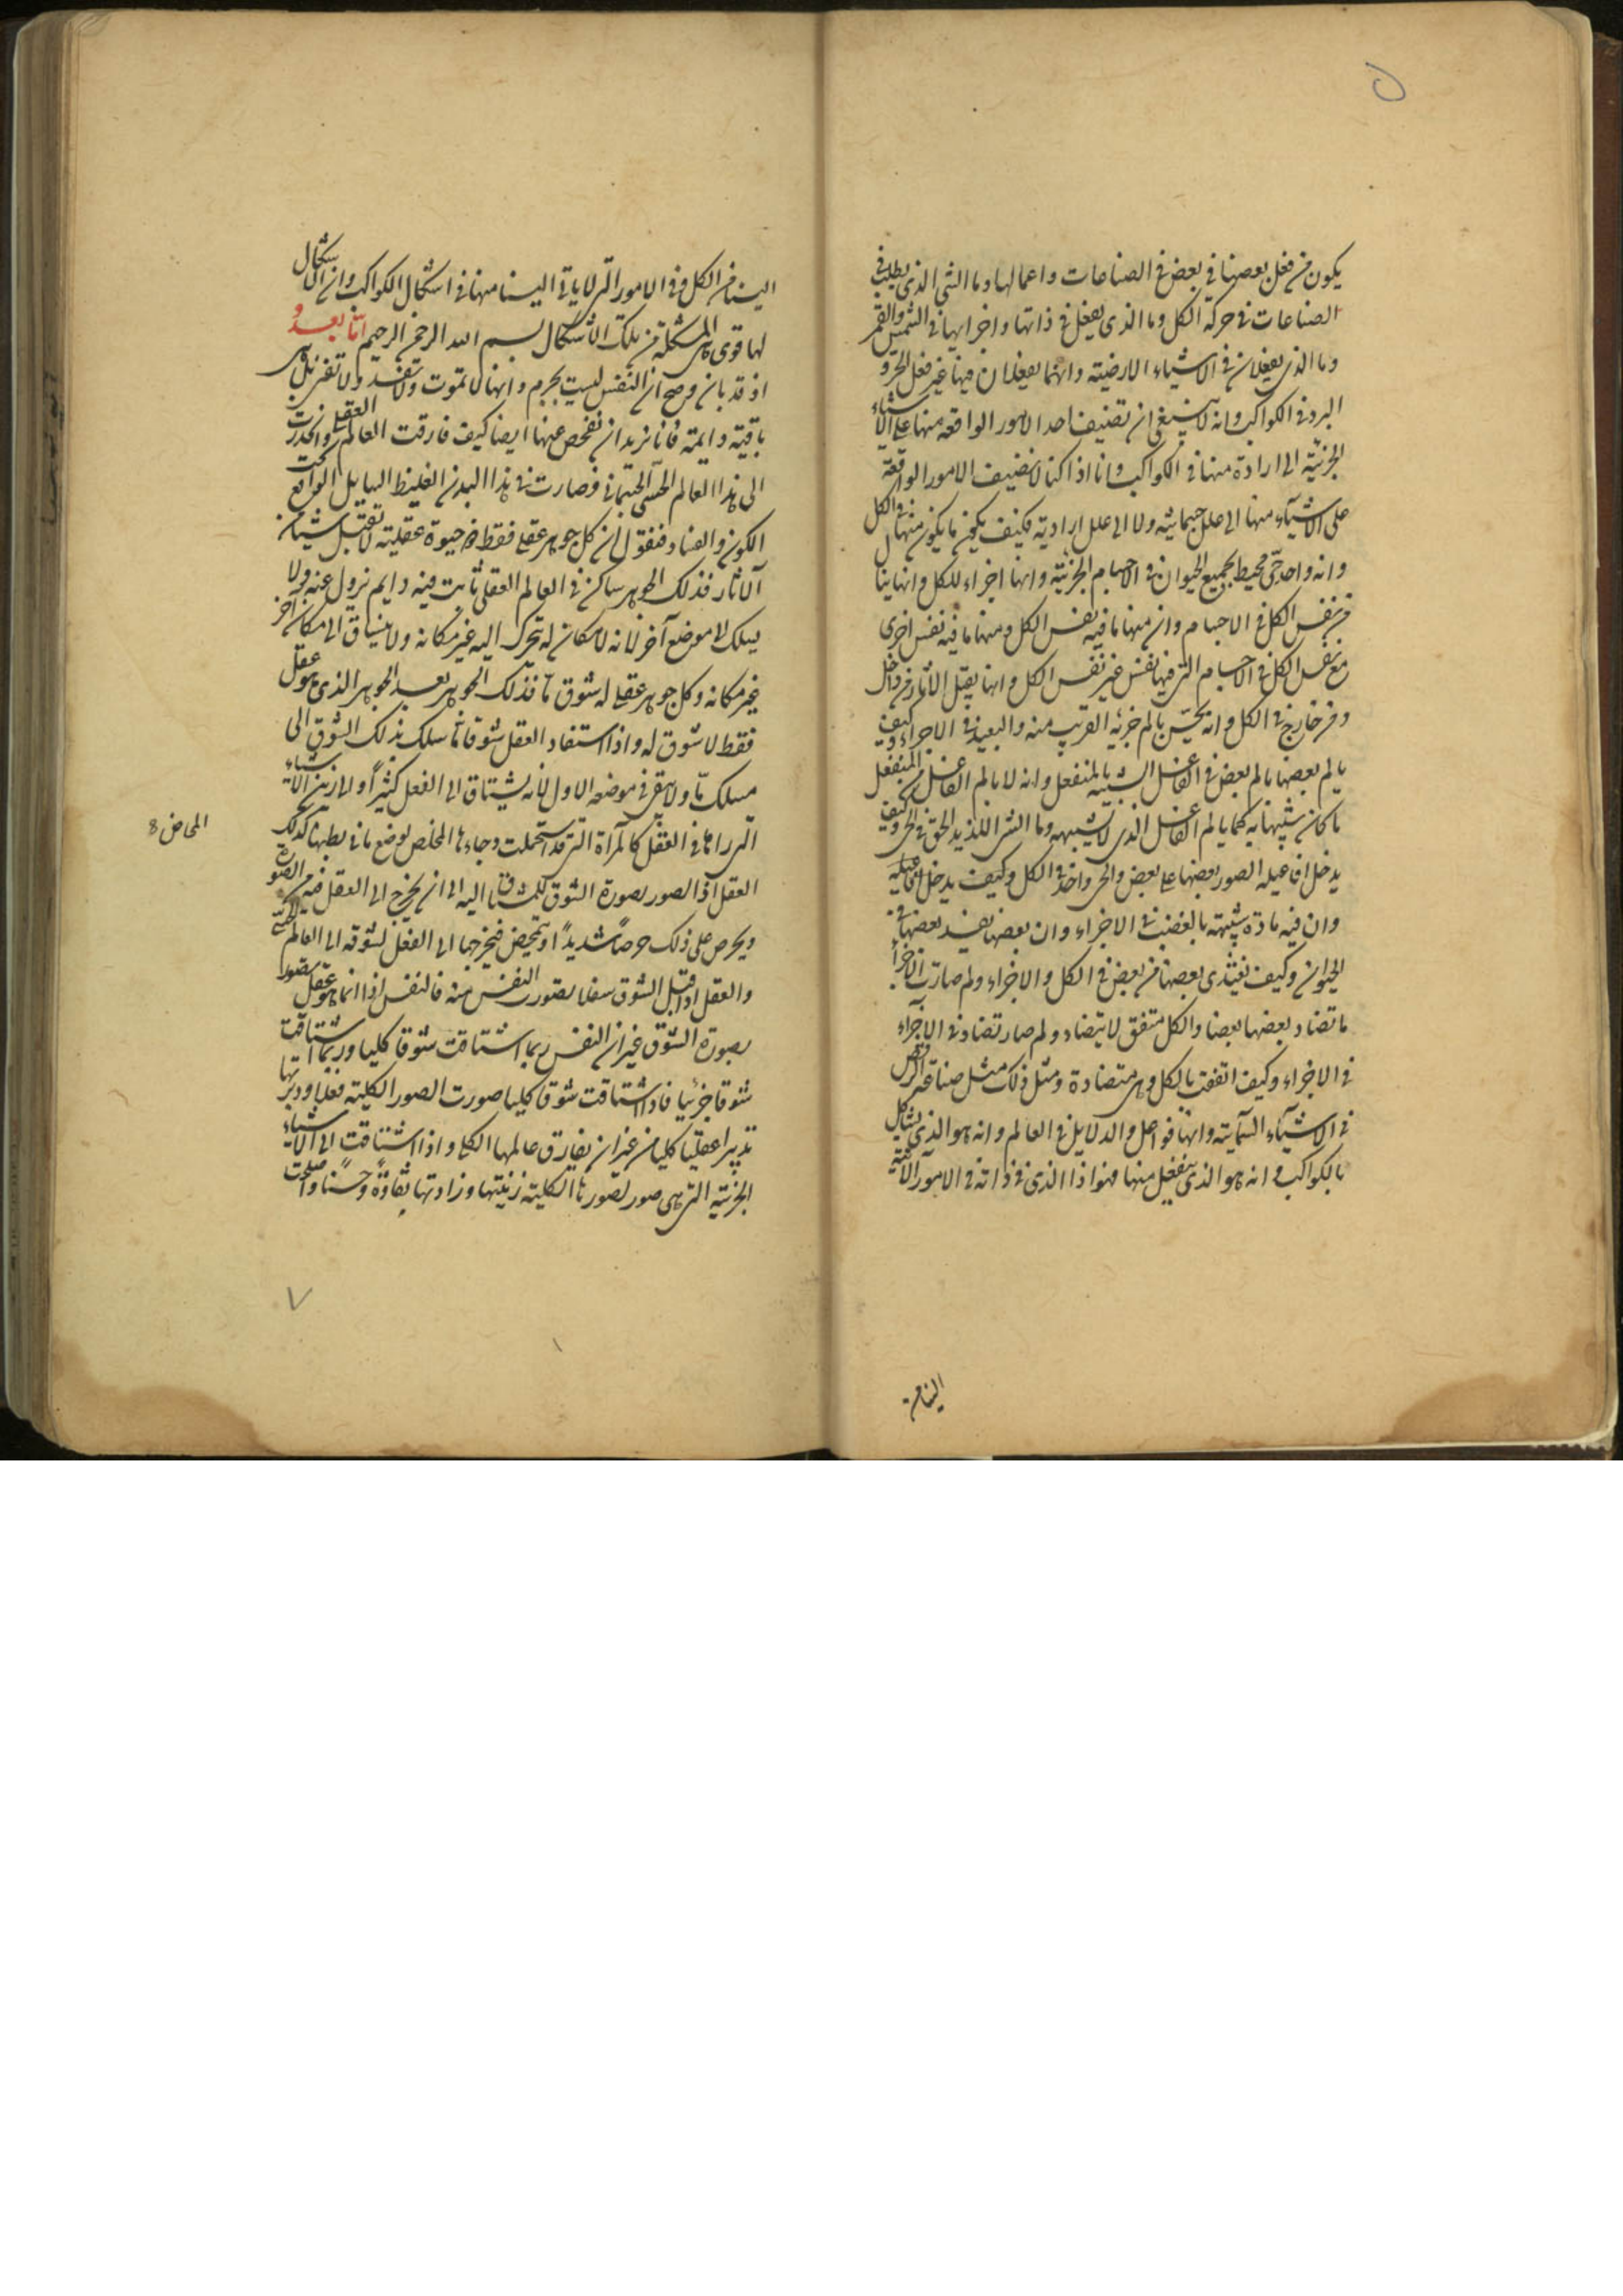 يكون من فعل بعضها في بعض في الصناعات واعمالها وما الشي الذي يطلب في
الصناعات في حركة الكل وما الذي يفعل في ذاتها واخراتها في الشمس والقمر
وما الذي يفعلان في الاشياء الارضية وانهما يفعلان فيها غير فعل الحر و
البرد في الكواكب وانه لا ينبغي ان تضيف احد الامور الواقعة منها على الاشياء
الجزئية الى ارادة منها في الكواكب وانا اذا كنا لا نضيف الامور الواقعة
على الاشياء منها الى علل جسمانية ولا الى علل ارادية فكيف يكون ما يكون منها في الكل
وانه واحد حي محيط بجميع الحيوان في الاجسام الجزئية وانها اجزاء للكل وانها ينا
من نفس الكل في الاجسام وان منها ما فيه نفس الكل ومنها ما فيه نفس اخرى
مع نفس الكل في الاجسام التي فيها نفس غير نفس الكل وانها يقبل الآثار من داخل
ومن خارج في الكل وانه يحس بالم جزئه القريب منه والبعيد في الاجزاء وكيف
يالم بعضها بالم بعض في الفاعل الشبيه بالمنفعل وانه لا يالم الفاعل من المنفعل
ما كان شبيها به كما يالم الفاعل الذي لا يشبهه وما الشر اللذيذ الحق في الحي وكيف
يدخل افاعيله الصور بعضها على بعض والحي واحد في الكل وكيف يدخل افاعيله
وان فيه مادة شبيهة بالغضب في الاجزاء وان بعضها يفسد بعضها في
الحيوان وكيف يغتذى بعضها من بعض في الكل والاجزاء ولم صارت الاجزاء
ما تضاد بعضها بعضا والكل متفق لا يتضاد ولم صار تضاد في الاجزاء
في الاجزاء وكيف اتفقت بالكل وهي متضادة ومثل ذلك مثل صناعة الرقص
في الاشياء السمآئية وانها فواعل والدلايل في العالم وانه هو الذي يشاكل
بالكواكب وانه هو الذي ينفعل منها فهو اذا الذي في ذاته في الامور الآتية
الينا من
الينا من الكل وفي الامور التي لا ياتي الينا منها في اشكال الكواكب وان الاشكال
لها قوى وهي المشكلة من تلك الاشكال بسم الله الرحمن الرحيم اما بعد و
اذ قد بان وصح ان النفس ليست بجرم وانها لا تموت ولا تفسد ولا تفنى بل هي
باقية دايمة فانا نريد ان نفحص عنها ايضا كيف فارقت العالم العقلي وانحدرت
الى هذا العالم الحسي الجسماني فصارت في هذا البدن الغليظ السايل الواقع تحت
الكون والفساد فنقول ان كل جوهر عقلي فقط ذو حيوة عقلية لا تقبل شيئا من
الآثار فذلك الجوهر ساكن في العالم العقلي ثابت فيه دايم لا يزول عنه ولا
يسلك الى موضع آخر لانه لا مكان له يتحرك اليه غير مكانه ولا يشتاق الى مكان آخر
غير مكانه وكل جوهر عقلي له شوق ما فذلك الجوهر بعد الجوهر الذي هو عقل
فقط لا شوق له واذا استفاد العقل شوقا ما سلك بذلك الشوق الى
مسلك ما ولا يبقى في موضعه الاول لانه يشتاق الى الفعل كثيرا والى زين الاشياء
التي رآها في العقل كالمرأة التي قد اشتملت وجاءها المخاض لوضع ما في بطنها كذلك
المخاض 8
العقل اذا الصور بصورة الشوق للمشتاق اليه الى ان يخرج الى العقل ما فيه من الصورة
ويحرص على ذلك حرصا شديدا ويتمخض فيخرجها الى الفعل لشوقه الى العالم الحسي
والعقل اذا قبل الشوق سفلا تصورت النفس منه فالنفس اذا انما هو عقل تصور
بصورة الشوق غير ان النفس ربما اشتاقت شوقا كليا وربما اشتاقت
شوقا جزئيا فاذا اشتاقت شوقا كليا صورت الصور الكلية فعلا ودبرتها
تدبيرا عقليا كليا من غير ان يفارق عالمها الكلي واذا اشتاقت الى الاشياء
الجزئية التي هي صور لصورها الكلية زينتها وزادتها نقاوة وحسنا واصلحت